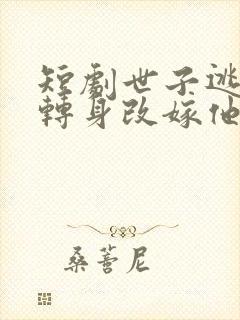 短劇世子逃
轉身改嫁他
桑蓄尼